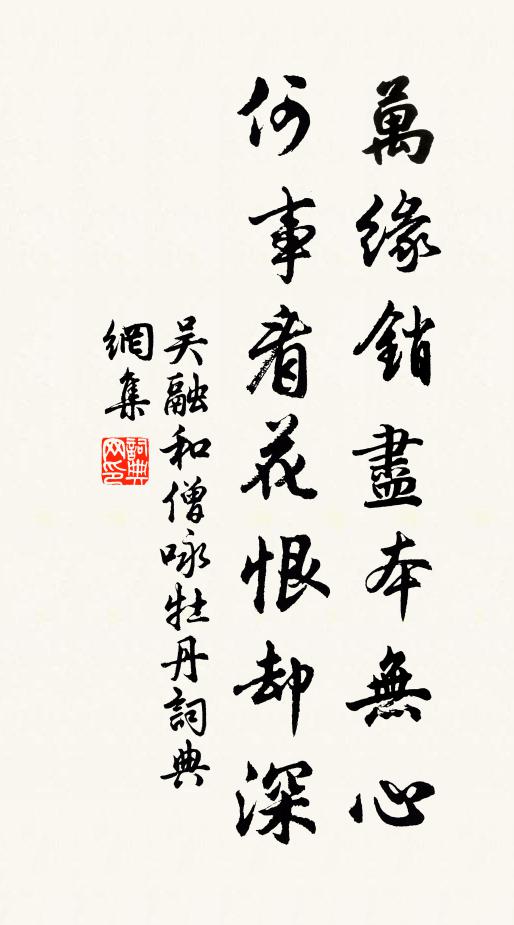 萬緣銷盡本無心
何事看花恨却深
吳融和僧咏牡丹詞典
網集
詞典網印